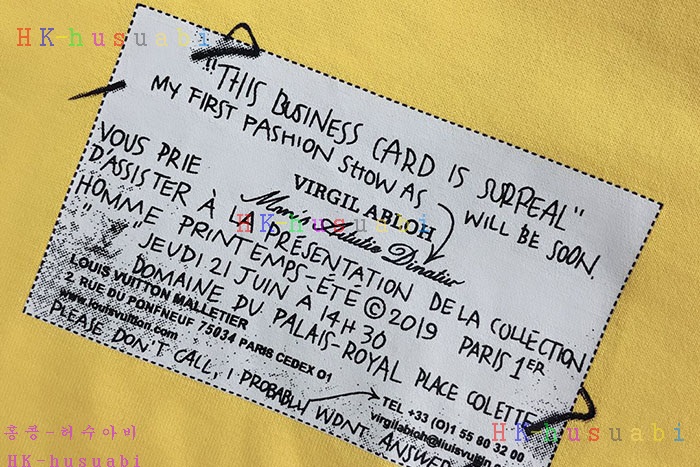 HK-husuabi
"THIS BUSINESS CARD IS SURREAL"
MY FIRST FASHION SHOW AS WILL BE SOON.
VIRGIL ABLOH
VOUS PRIE
D'ASSISTER À LA PRÉSENTATION DE LA COLLECTION
HK-husuabi
HOMME PRINTEMPS-ÉTÉ © 2019 PARIS 1ER
"JEUDI 21 JUIN À 14H30
DOMAINE DU PALAIS-ROYAL PLACE COLETTE
LOUIS VUITTON MALLETIER
2, RUE DU PONFNEUF 75034 PARIS CEDEX O1
www.louisvuitton.com
TEL +33 (O)1 55 80 32 00
PLEASE DON'T CALL, I PROBABLY WONT ANSWER
HK-husuabi
홍콩-허수아비
HK-husuabi